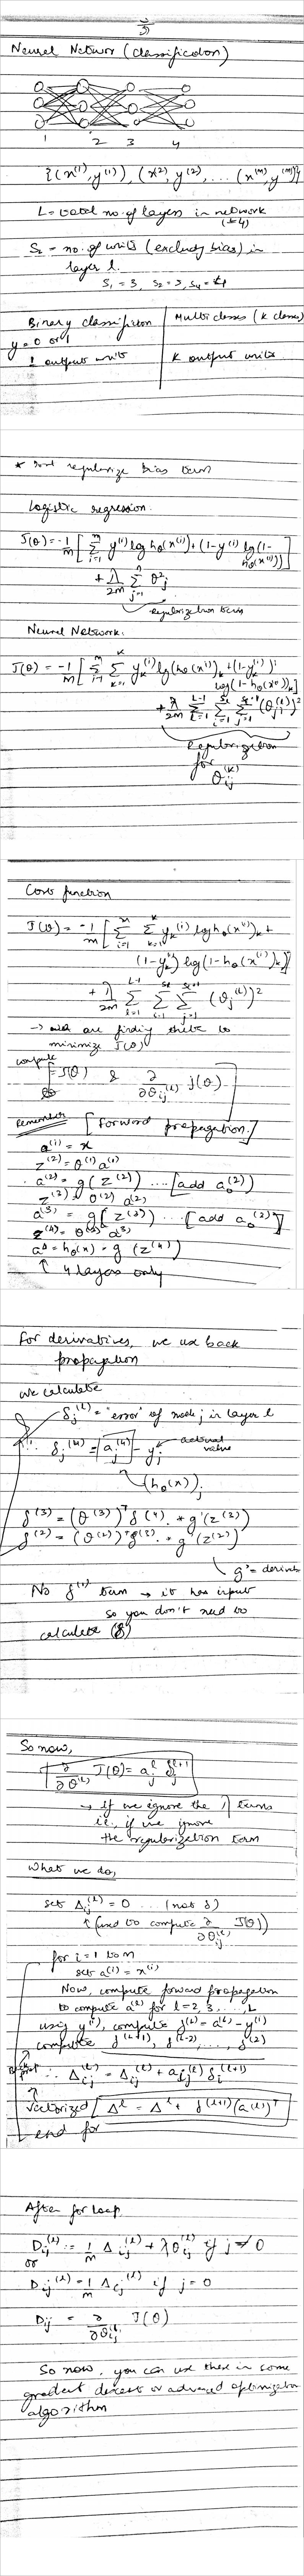 Neural Networ (classification)
1 2 3 4
{(x⁽¹⁾, y⁽¹⁾), (x⁽²⁾, y⁽²⁾, ... (x⁽ᵐ⁾, y⁽ᵐ⁾)}
L = total no. of layers in network
(=4)
S_l = no. of units (exclude bias) in
layer l.
S₁ = 3, S₂ = 3, S₄ = 4
Binary classification
y = 0 or 1
1 output units
Multi classes (K classes)
K output units
* regularize bias term
Logistic regression.
J(θ) = -1/m [ Σᵢ₌₁ᵐ y⁽ⁱ⁾ log hθ(x⁽ⁱ⁾) + (1-y⁽ⁱ⁾) log(1-
hθ(x⁽ⁱ⁾)) ]
+ λ/2m Σⱼ₌₁ⁿ θ²ⱼ
regularization term
Neural Network.
J(θ) = -1/m [ Σᵢ₌₁ᵐ Σₖ₌₁ᴷ yₖ⁽ⁱ⁾ log(hθ(x⁽ⁱ⁾)ₖ + (1-yₖ⁽ⁱ⁾)
log(1-hθ(x⁽ⁱ⁾)ₖ) ]
+ λ/2m Σ_{l=1}^{L-1} Σ_{i=1}^{Sl} Σ_{j=1}^{Sl+1} (θⱼᵢ⁽ˡ⁾)²
Regularization
for
θᵢⱼ⁽ᴷ⁾
Cost function
J(θ) = -1/m [ Σᵢ₌₁ᵐ Σₖ₌₁ᴷ yₖ⁽ⁱ⁾ log hθ(x⁽ⁱ⁾)ₖ +
(1-yₖ⁽ⁱ⁾) log(1-hθ(x⁽ⁱ⁾)ₖ) ]
+ λ/2m Σ_{l=1}^{L-1} Σ_{i=1}^{Sl} Σ_{j=1}^{Sl+1} (θⱼ⁽ˡ⁾)²
→ are finding theta to
minimize J(θ)
compute
- J(θ) & ∂/∂θᵢⱼ⁽ˡ⁾ J(θ)
Remember [forward propagation.]
a⁽¹⁾ = x
z⁽²⁾ = θ⁽¹⁾ a⁽¹⁾
a⁽²⁾ = g(z⁽²⁾) .... [add a₀⁽²⁾]
z⁽³⁾ = θ⁽²⁾ a⁽²⁾
a⁽³⁾ = g(z⁽³⁾) .... [add a₀⁽²⁾]
z⁽⁴⁾ = θ⁽³⁾ a⁽³⁾
a⁴ = hθ(x) = g(z⁽⁴⁾)
↑ 4 layers only
For derivatives, we use back
propagation
we calculate
δⱼ⁽ˡ⁾ = "error" of node j in layer l
δⱼ⁽⁴⁾ = aⱼ⁽⁴⁾ - yⱼ actual
value
(hθ(x))ⱼ
δ⁽³⁾ = (θ⁽³⁾)ᵀ δ⁽⁴⁾ .* g'(z⁽³⁾)
δ⁽²⁾ = (θ⁽²⁾)ᵀ δ⁽³⁾ .* g'(z⁽²⁾)
g' = deriv
No δ⁽¹⁾ term → it has input
so you don't need to
calculate (δ)
So now,
∂/∂θ⁽ˡ⁾ J(θ) = aⱼˡ δᵢˡ⁺¹
→ if we ignore the λ terms
i.e., if we ignore
the regularization term
What we do,
set Δᵢⱼ⁽ˡ⁾ = 0 ... (not δ)
↑ (used to compute ∂/∂θᵢⱼ⁽ˡ⁾ J(θ))
for i = 1 to m
set a⁽¹⁾ = x⁽ⁱ⁾
Now, compute forward propagation
to compute a⁽ˡ⁾ for l = 2, 3, ..., L
using y⁽ⁱ⁾, compute δ⁽ᴸ⁾ = a⁽ᴸ⁾ - y⁽ⁱ⁾
compute δ⁽ᴸ⁻¹⁾, δ⁽ᴸ⁻²⁾, ..., δ⁽²⁾
∴ Δᵢⱼ⁽ˡ⁾ = Δᵢⱼ⁽ˡ⁾ + aⱼ⁽ˡ⁾ δᵢ⁽ˡ⁺¹⁾
Vectorized [Δˡ = Δˡ + δ⁽ˡ⁺¹⁾ (a⁽ˡ⁾)ᵀ]
end for
After for loop
Dᵢⱼ⁽ˡ⁾ := 1/m Δᵢⱼ⁽ˡ⁾ + λθᵢⱼ⁽ˡ⁾ if j ≠ 0
or
Dᵢⱼ⁽ˡ⁾ = 1/m Δᵢⱼ⁽ˡ⁾ if j = 0
Dᵢⱼ = ∂/∂θᵢⱼ⁽ˡ⁾ J(θ)
So now, you can use these in some
gradient descent or advanced optimization
algorithm